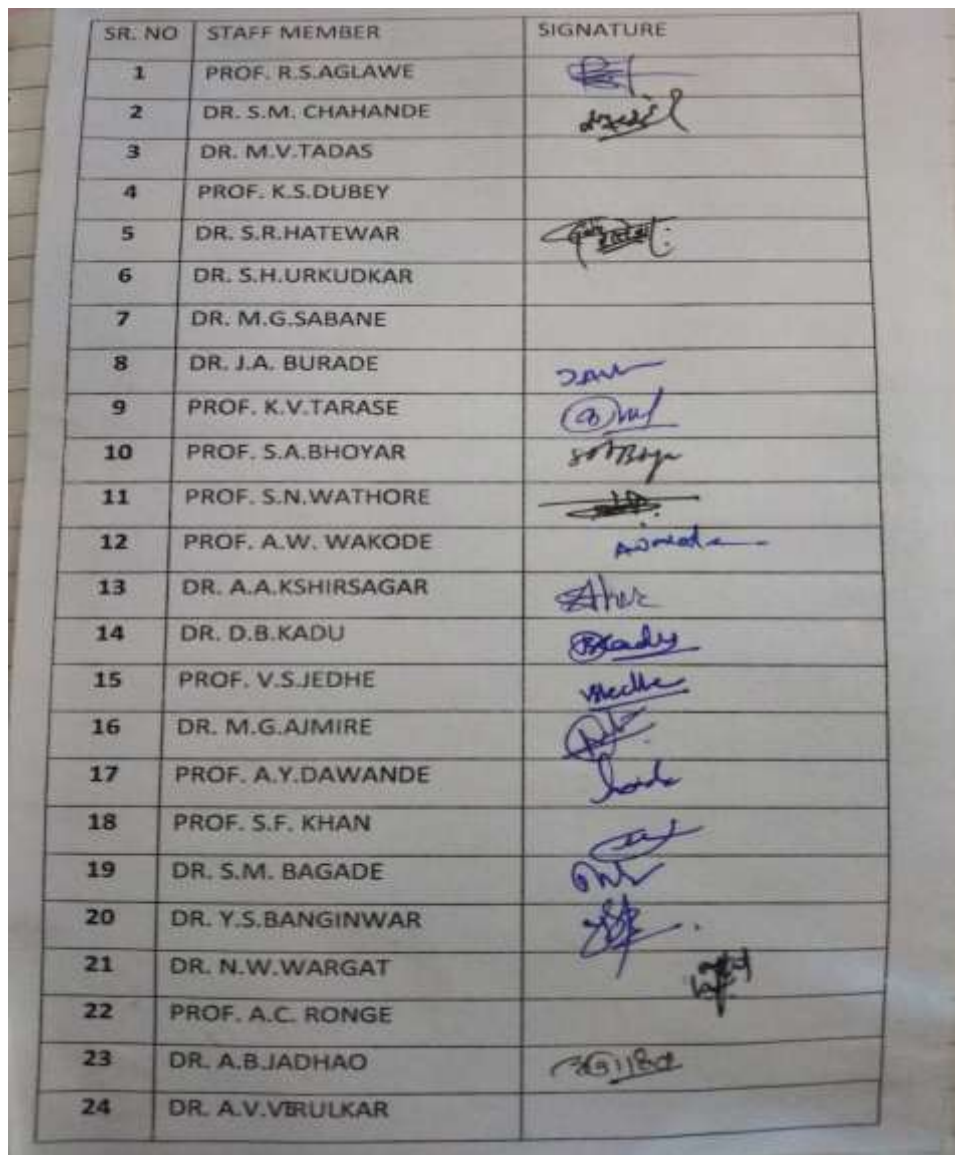 SR. NO STAFF MEMBER SIGNATURE
1 PROF. R.S.AGLAWE
2 DR. S.M. CHAHANDE
3 DR. M.V.TADAS
4 PROF. K.S.DUBEY
5 DR. S.R.HATEWAR
6 DR. S.H.URKUDKAR
7 DR. M.G.SABANE
8 DR. J.A. BURADE
9 PROF. K.V.TARASE
10 PROF. S.A.BHOYAR
11 PROF. S.N.WATHORE
12 PROF. A.W. WAKODE
13 DR. A.A.KSHIRSAGAR
14 DR. D.B.KADU
15 PROF. V.S.JEDHE
16 DR. M.G.AJMIRE
17 PROF. A.Y.DAWANDE
18 PROF. S.F. KHAN
19 DR. S.M. BAGADE
20 DR. Y.S.BANGINWAR
21 DR. N.W.WARGAT
22 PROF. A.C. RONGE
23 DR. A.B.JADHAO
24 DR. A.V.VIRULKAR